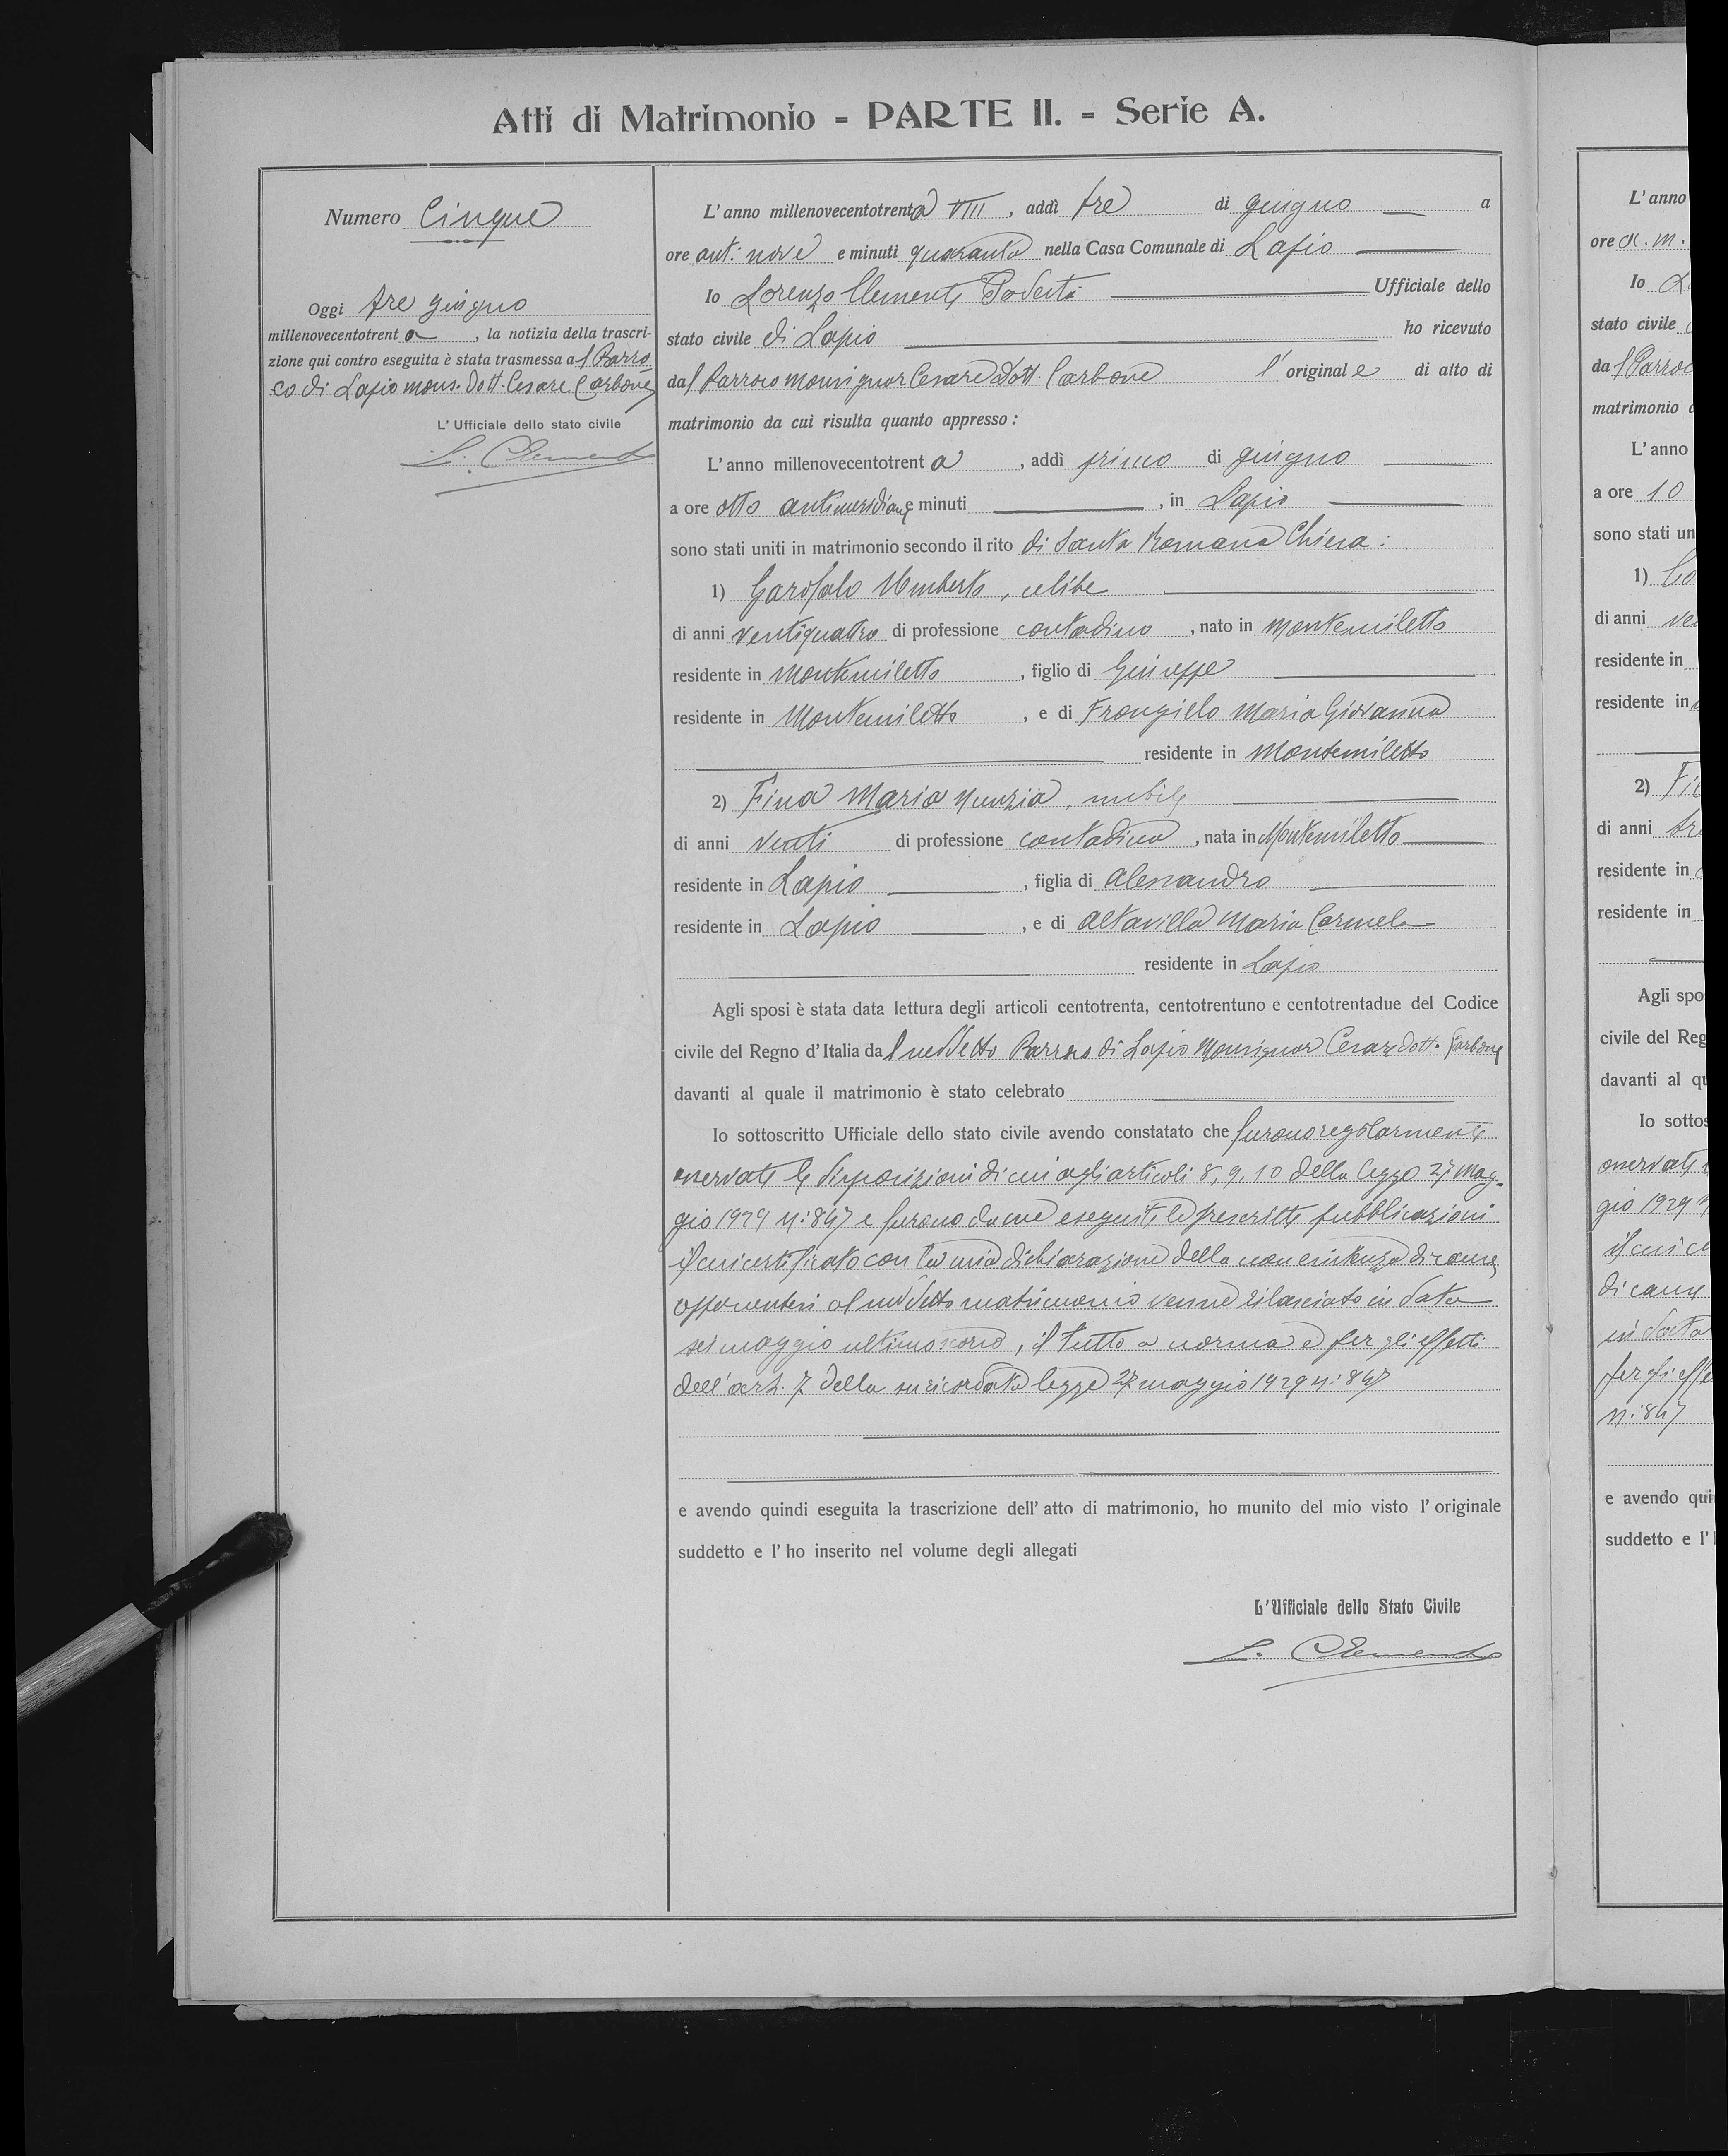 Atti di Matrimonio - PARTE II. - Serie A.
Numero Cinque
Oggi tre giugno
millenovecentotrenta, la notizia della trascri-
zione qui contro eseguita è stata trasmessa al Parro-
co di Lapio mons. Dott. Cesare Carbone
L'Ufficiale dello stato civile
L. Clemente
L'anno millenovecentotrenta VIII, addì tre di giugno a
ore ant: nove e minuti quaranta nella Casa Comunale di Lapio
Io Lorenzo Clemente Podestà Ufficiale dello
stato civile di Lapio ho ricevuto
dal Parroco monsignor Cesare Dott. Carbone l'originale di atto di
matrimonio da cui risulta quanto appresso:
L'anno millenovecentotrenta, addì primo di giugno
a ore otto antimeridiane e minuti , in Lapio
sono stati uniti in matrimonio secondo il rito di Santa Romana Chiesa:
1) Garofalo Umberto, celibe
di anni ventiquattro di professione contadino, nato in Montemiletto
residente in Montemiletto, figlio di Giuseppe
residente in Montemiletto, e di Frongillo Maria Giovanna
residente in Montemiletto
2) Fina Maria Nunzia, nubile
di anni venti di professione contadina, nata in Montemiletto
residente in Lapio, figlia di Alessandro
residente in Lapio, e di Altavilla Maria Carmela
residente in Lapio
Agli sposi è stata data lettura degli articoli centotrenta, centotrentuno e centotrentadue del Codice
civile del Regno d'Italia dal suddetto Parroco di Lapio Monsignor Cesare dott. Carbone
davanti al quale il matrimonio è stato celebrato
Io sottoscritto Ufficiale dello stato civile avendo constatato che furono regolarmente
osservate le disposizioni di cui agli articoli 8, 9, 10 della legge 27 Mag-
gio 1929 N: 847 e furono da me eseguite le prescritte pubblicazioni
il cui certificato con la mia dichiarazione della non esistenza di cause
opponentesi al suddetto matrimonio venne rilasciato in data
sei maggio ultimo scorso, il tutto a norma e per gli effetti
dell'art. 7 della suricordata legge 27 maggio 1929 N: 847
e avendo quindi eseguita la trascrizione dell'atto di matrimonio, ho munito del mio visto l'originale
suddetto e l'ho inserito nel volume degli allegati
L'Ufficiale dello Stato Civile
L. Clemente
L'anno
ore a. m.
Io
stato civile
da l Parroc
matrimonio
L'anno
a ore 10
sono stati un
1)
di anni
residente in
residente in
2)
di anni
residente in
residente in
Agli spo
civile del Reg
davanti al qu
Io sottos
osservate
gio 1929
il cui ce
di cause
in data
per gli effe
N: 847
e avendo qui
suddetto e l'